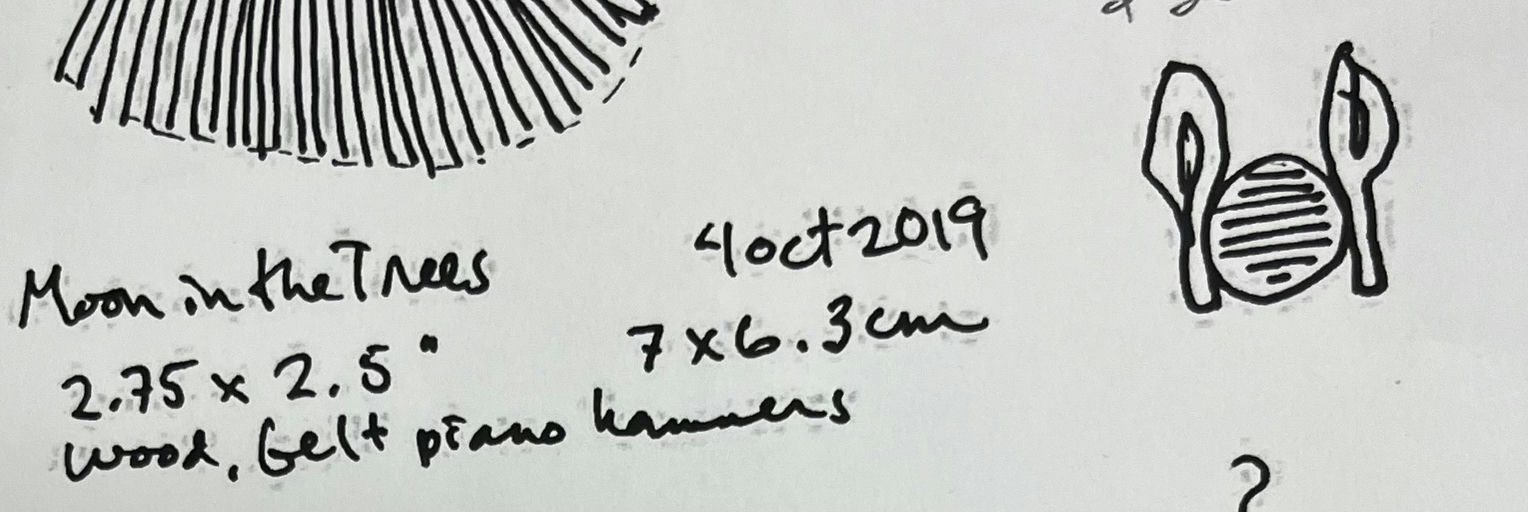 Moon in the Trees 4 oct 2019
2.75 x 2.5" 7 x 6.3 cm
wood, felt piano hammers
?